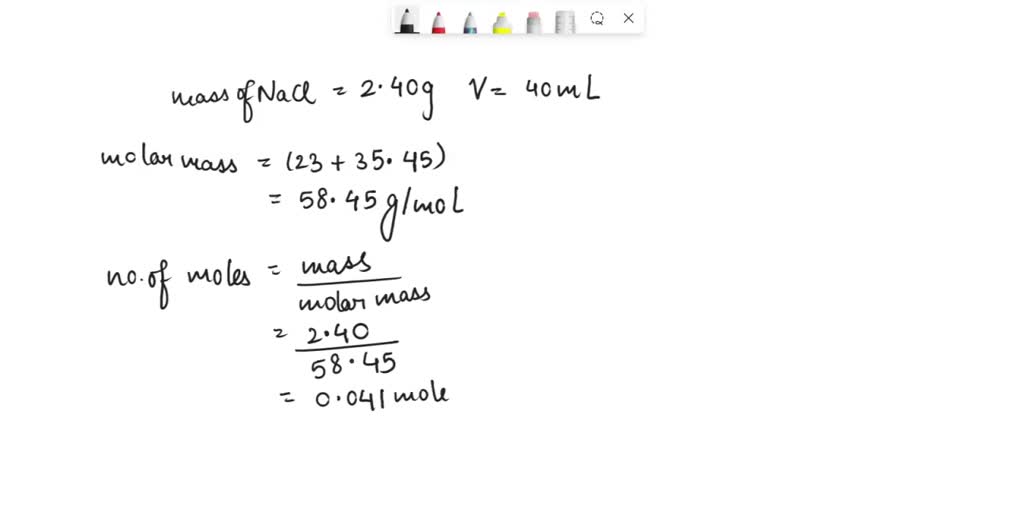 mass of NaCl = 2.40g V= 40mL
molar mass = (23 + 35.45)
= 58.45 g/mol
no. of moles = mass
molar mass
= 2.40
58.45
= 0.041 mole